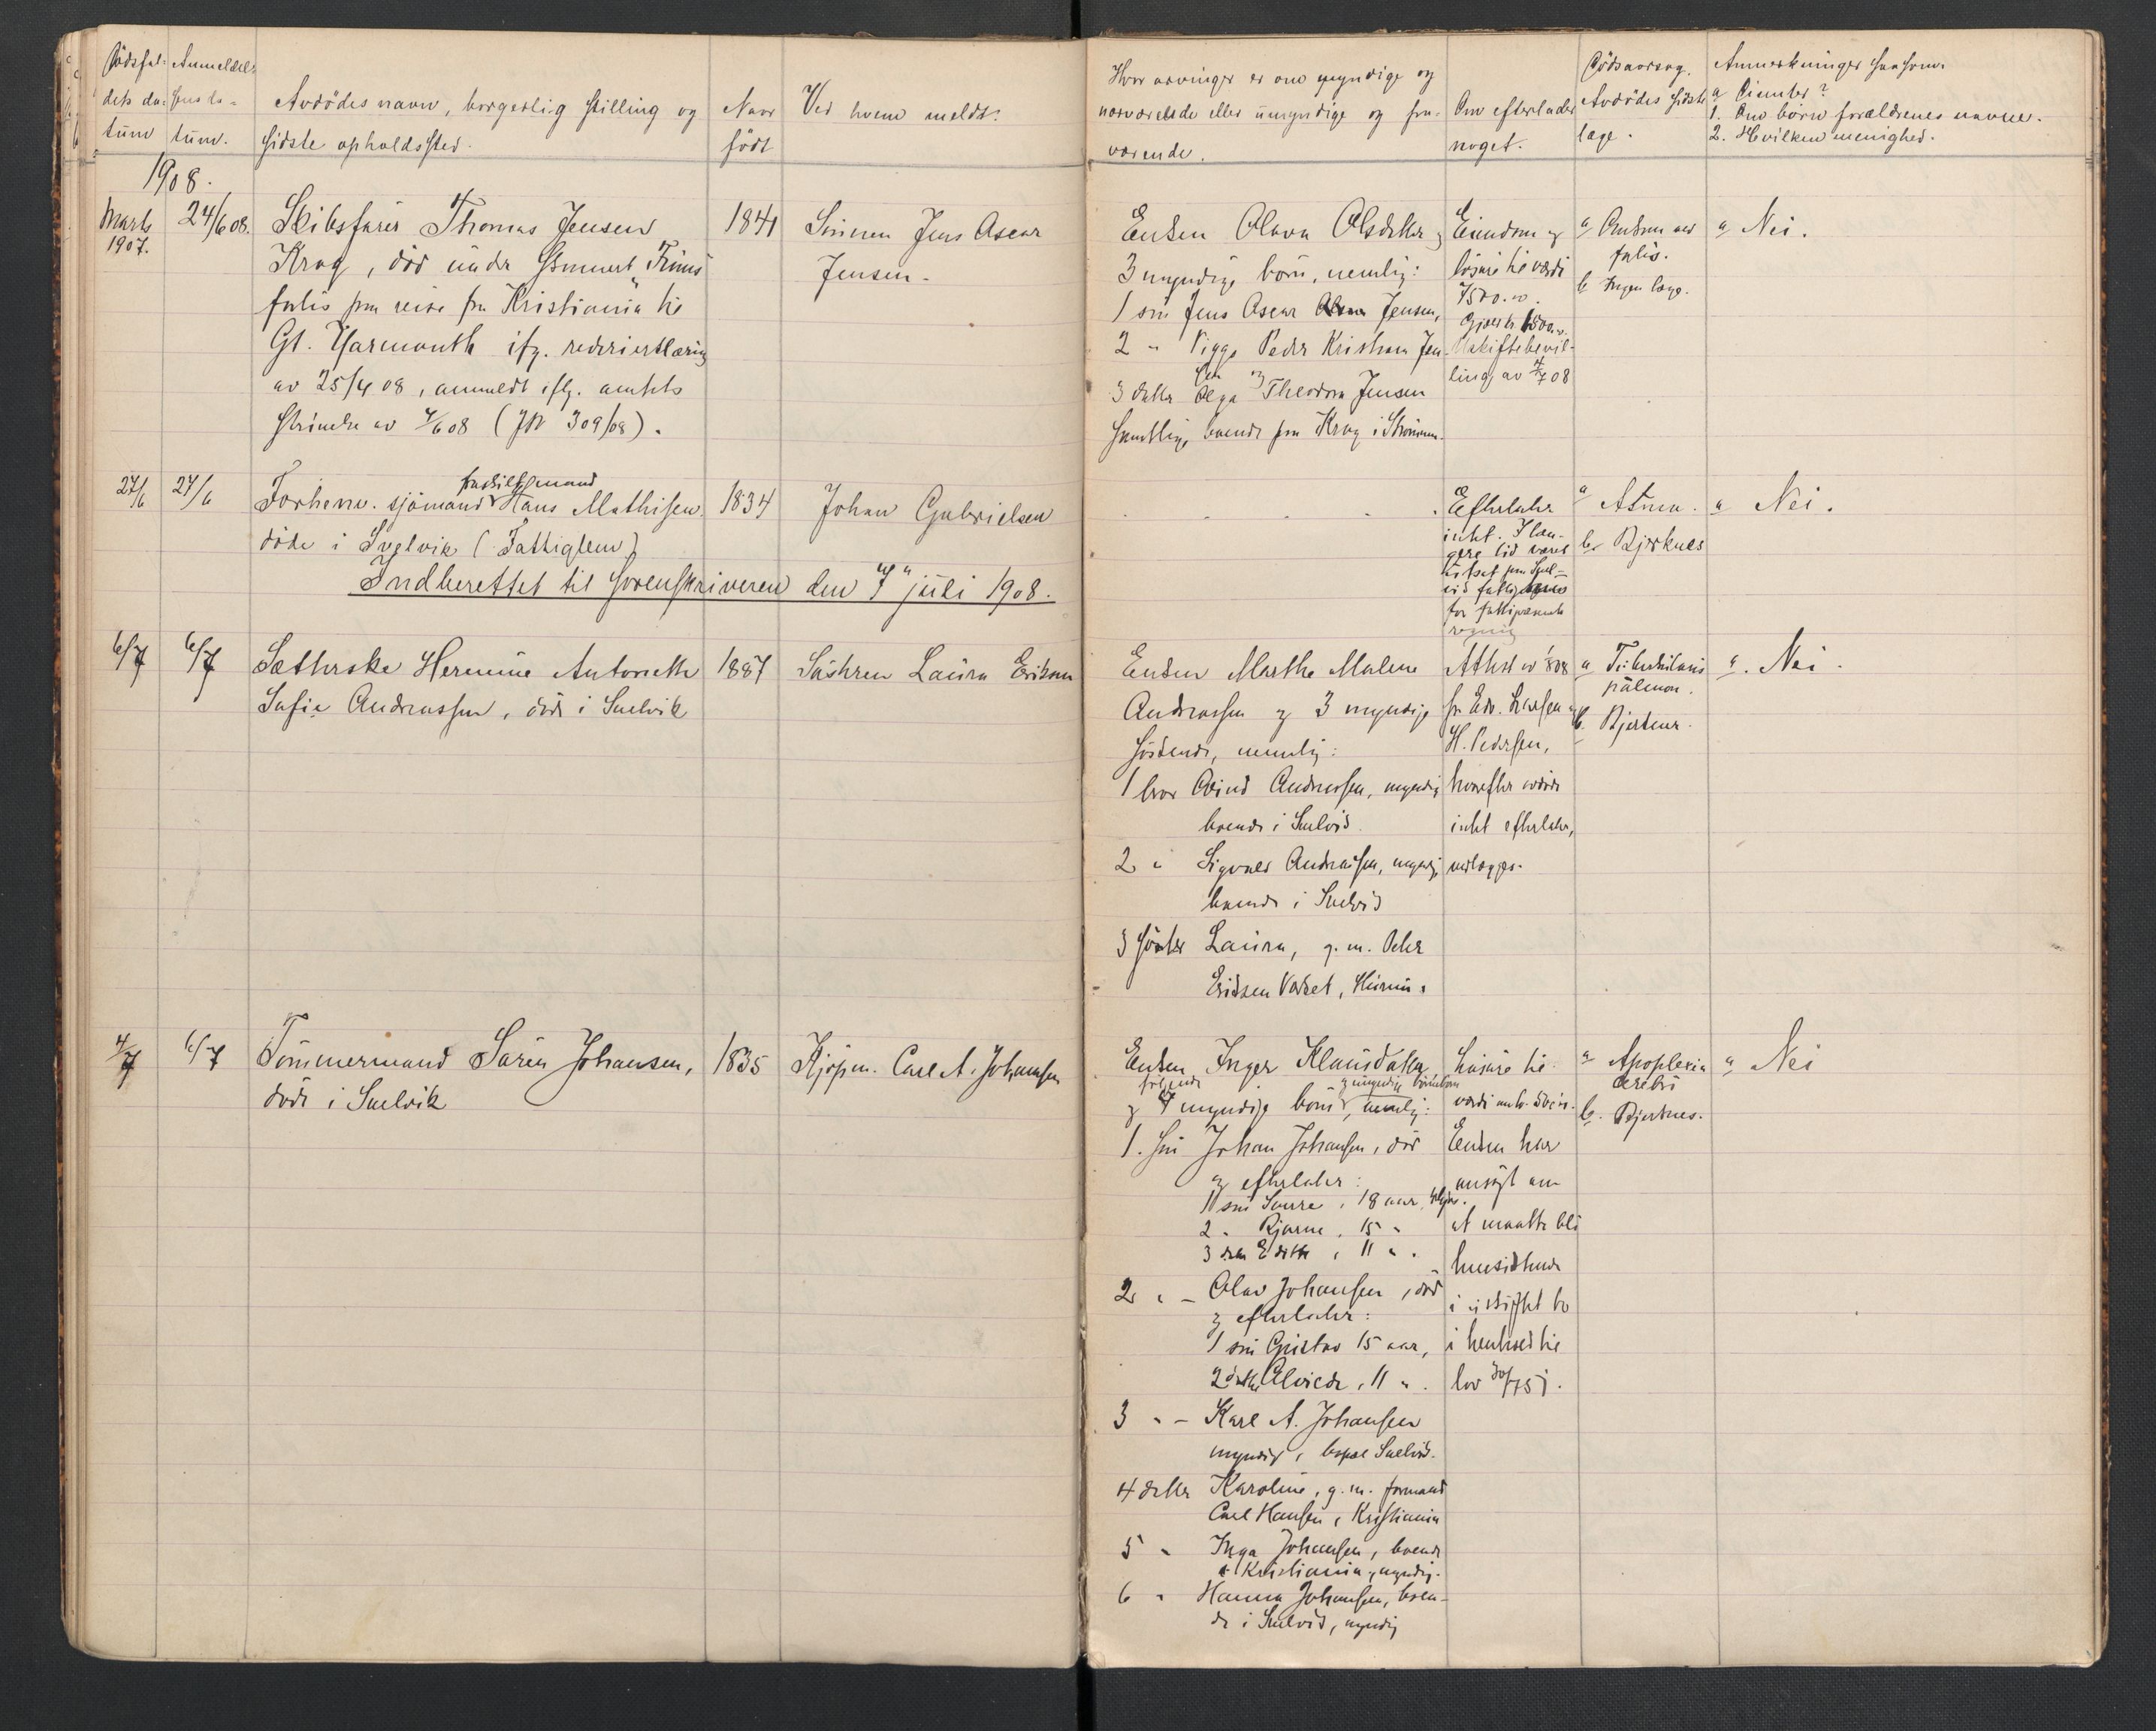 Dödsfal- Anmeldel-
dets da- sens da-
tum tum.
Avdödes navn, borgerlig stilling og
sidste opholdssted.
Naar
født
Ved hvem meldt.
Hvor arvinger er om myndige og
nærværende eller umyndige og fra-
værende.
Om efterlader
noget.
Dödsaarsag.
Avdödes sidste
læge.
Anmerkninger saasom
a Disenter?
1. Om børn forældrenes navne.
2. Hvilken menighed.
1908.
Marts
1907.
24/6 08.
Skibsfører Thomas Jensen
Krog, död under
forlis paa reise fra Kristiania til
Gt. Yarmouth ifg. rederierklæring
av 25/4 08, anmeldt iflg. amtets
skrivelse av 4/6 08 (JN 309/08).
1841
Sønnen Jens Oscar
Jensen.
Enken Olava Olsdatter og
3 myndige børn, nemlig:
1 søn Jens Oscar Jensen,
2 " Viggo Peder Kristian Jen-
sen og
3 datter Olga Theodora Jensen
samtlige boende paa Krog i Strømmen.
Eiendom og
løsøre til værdi
7500.00.
Gjæld kr 1500.00.
Uskiftebevil-
ling av 4/7 08
a Omkom ved
forlis.
b Ingen læge.
a Nei.
27/6 27/6
Forhenv. sjömand Hans Mathisen,
døde i Svelvik (Fattiglem)
1834
Johan Gabrielsen
Efterlader
intet. I læn-
gere tid været
for fattigvæsenets
regning
a Astma.
b. Bjerknes
a Nei.
Indberettet til sorenskriveren den 7" juli 1908.
6/7 6/7
Sætherske Hermine Antonette
Sofie Andreassen, död i Svelvik
1887
Søstren Laura Eriksen
Enken Marthe Malene
Andreassen og 3 myndige
søskende, nemlig:
1 bror Eivind Andreassen, myndig
boende i Svelvik.
2 " Sigvald Andreassen, myndig,
boende i Svelvik
3 søster Laura, g. m. Peder
Eriksen Verket, Hurum.
Attest av
fra Edv. Larsen og
H. Pedersen,
hvorefter avdöde
intet efterlater,
vedlægges.
a Tuberkulosis
pulmon.
b. Bjerknes.
a. Nei.
4/7 6/7
Tömmermand Sören Johansen,
döde i Svelvik
1835
Kjøpm. Carl A. Johansen
Enken Inger Klausdatter,
følgende
og 7 myndige børn og umyndige børnebørn, nemlig:
1. søn Johan Johansen, död
og efterlater:
1 søn Sverre, 18 aar,
2 " Bjarne, 15 "
3 datter Edith, 11 " .
2 " - Olav Johansen, död
og efterlater:
1 søn Gustav 15 aar,
2 datter Alvilde, 11 " .
3 " - Karl A. Johansen
myndig, bopæl Svelvik.
4 datter Karoline, g. m. formand
Carl Hansen, Kristiania
5 " Inga Johansen, boende
i Kristiania, myndig.
6 " Hanna Johansen, boen-
de i Svelvik, myndig
Løsøre til
værdi
Enken har
ansøgt om
at maatte bli
hensittende
i uskiftet bo
i henhold til
lov 30/7 51.
a Apoplexia
cerebri
b. Bjerknes.
a Nei